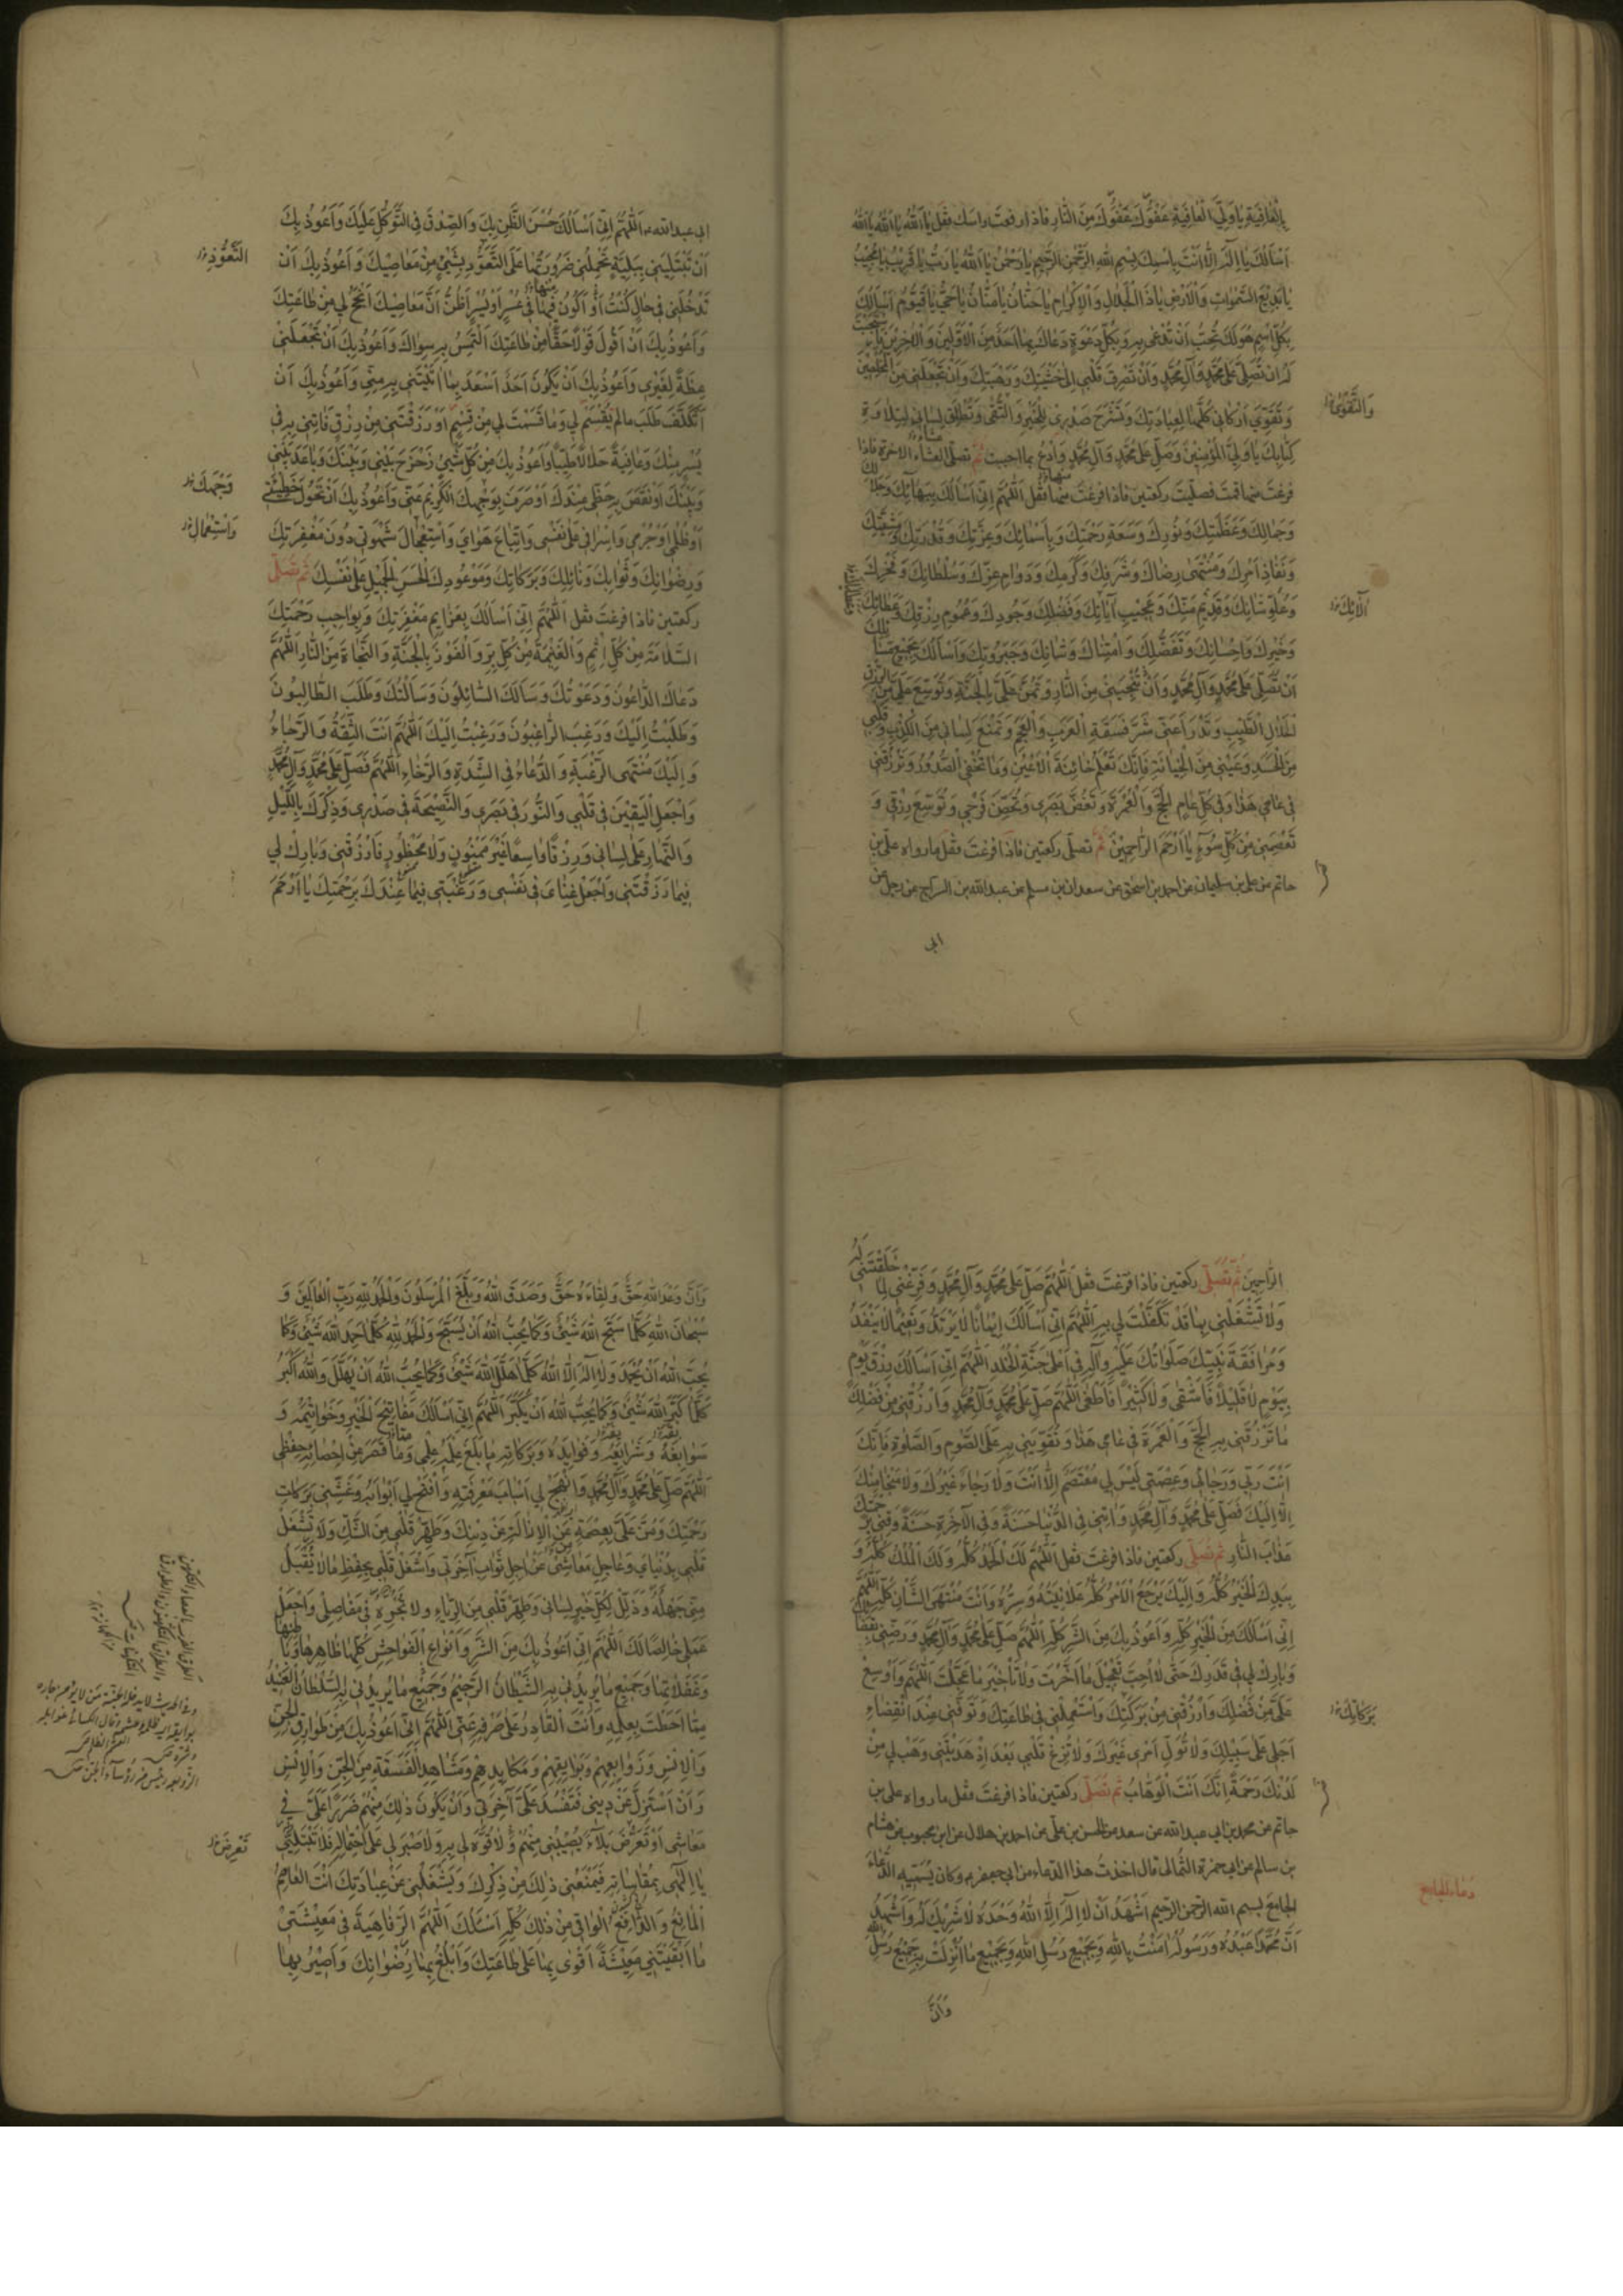 بِالْعَافِيَةِ يَا وَلِيَّ الْعَافِيَةِ عَفْوَكَ عَفْوَكَ مِنَ النَّارِ فاذا رفعتَ راسك فقل يَا اَللهُ يَا اَللهُ يَا اَللهُ
اَسْاَلُكَ يَا لَا اِلٰهَ اِلَّا اَنْتَ بِاسْمِكَ بِسْمِ اللهِ الرَّحْمٰنِ الرَّحِيْمِ يَا رَحْمٰنُ يَا اَللهُ يَا رَبُّ يَا قَرِيْبُ يَا مُجِيْبُ
يَا بَدِيْعَ السَّمٰوَاتِ وَالْاَرْضِ يَا ذَا الْجَلَالِ وَالْاِكْرَامِ يَا حَنَّانُ يَا مَنَّانُ يَا حَيُّ يَا قَيُّوْمُ اَسْاَلُكَ
بِكُلِّ اسْمٍ هُوَ لَكَ تُحِبُّ اَنْ تُدْعٰى بِهِ وَبِكُلِّ دَعْوَةٍ دَعَاكَ بِهَا اَحَدٌ مِنَ الْاَوَّلِيْنَ وَالْاٰخِرِيْنَ فَاسْتَجَبْتَ
لَهُ ان تُصَلِّيَ عَلٰى مُحَمَّدٍ وَآلِ مُحَمَّدٍ وَاَنْ تَصْرِفَ قَلْبِي اِلٰى خَشْيَتِكَ وَرَهْبَتِكَ وَاَنْ تَجْعَلَنِي مِنَ الْمُخْلِصِيْنَ
وَتُقَوِّيَ اَرْكَانِي كُلَّهَا لِعِبَادَتِكَ وَتَشْرَحَ صَدْرِي لِلْخَيْرِ وَالتُّقٰى وَتُطْلِقَ لِسَانِي لِتِلَاوَةِ
وَالتَّقْوٰى
كِتَابِكَ يَا وَلِيَّ الْمُؤْمِنِيْنَ وَصَلِّ عَلٰى مُحَمَّدٍ وَآلِ مُحَمَّدٍ وَادْعُ بما احببت ثُمَّ تصلّى العشاء الاخرة فاذا
فرغتَ منها قمتَ فصلّيت ركعتين فاذا فرغتَ منهما فَقُل اَللّٰهُمَّ اِنِّي اَسْاَلُكَ بِبَهَائِكَ وَجَلَالِكَ
وَجَمَالِكَ وَعَظَمَتِكَ وَنُوْرِكَ وَسَعَةِ رَحْمَتِكَ وَبِاَسْمَائِكَ وَعِزَّتِكَ وَقُدْرَتِكَ وَمَشِيَّتِكَ
وَنَفَاذِ اَمْرِكَ وَمُنْتَهٰى رِضَاكَ وَشَرَفِكَ وَكَرَمِكَ وَدَوَامِ عِزِّكَ وَسُلْطَانِكَ وَفَخْرِكَ
وَعُلُوِّ شَانِكَ وَقَدِيْمِ مَنِّكَ وَعَجِيْبِ آيَاتِكَ وَفَضْلِكَ وَجُوْدِكَ وَعُمُوْمِ رِزْقِكَ وَعَطَائِكَ
آلَائِكَ
وَخَيْرِكَ وَاِحْسَانِكَ وَتَفَضُّلِكَ وَامْتِنَانِكَ وَشَانِكَ وَجَبَرُوْتِكَ وَاَسْاَلُكَ بِجَمِيْعِ مَسَائِلِكَ
اَنْ تُصَلِّيَ عَلٰى مُحَمَّدٍ وَآلِ مُحَمَّدٍ وَاَنْ تُنْجِيَنِي مِنَ النَّارِ وَتَمُنَّ عَلَيَّ بِالْجَنَّةِ وَتُوَسِّعَ عَلَيَّ مِنَ الرِّزْقِ
الْحَلَالِ الطَّيِّبِ وَتَدْرَاَ عَنِّي شَرَّ فَسَقَةِ الْعَرَبِ وَالْعَجَمِ وَتَمْنَعَ لِسَانِي مِنَ الْكَذِبِ وَقَلْبِي
مِنَ الْحَسَدِ وَعَيْنِي مِنَ الْخِيَانَةِ فَاِنَّكَ تَعْلَمُ خَائِنَةَ الْاَعْيُنِ وَمَا تُخْفِي الصُّدُوْرُ وَتَرْزُقَنِي
فِي عَامِي هٰذَا وَفِي كُلِّ عَامٍ الْحَجَّ وَالْعُمْرَةَ وَتَغُضَّ بَصَرِي وَتُحَصِّنَ فَرْجِي وَتُوَسِّعَ رِزْقِي وَ
تَعْصِمَنِي مِنْ كُلِّ سُوْءٍ يَا اَرْحَمَ الرَّاحِمِيْنَ ثُمَّ تصلّى ركعتين فاذا فرغتَ فقل ما رواه علي بن
حاتم عن علي بن سليمان عن احمد بن اسحق عن سعدان بن مسلم عن عبدالله بن السراج عن رجل عن
ابي
ابي عبدالله اَللّٰهُمَّ اِنِّي اَسْاَلُكَ حُسْنَ الظَّنِّ بِكَ وَالصِّدْقَ فِي التَّوَكُّلِ عَلَيْكَ وَاَعُوْذُ بِكَ
اَنْ تَبْتَلِيَنِي بِبَلِيَّةٍ تَحْمِلُنِي ضَرُوْرَتُهَا عَلَى التَّعَوُّدِ بِشَيْءٍ مِنْ مَعَاصِيْكَ وَاَعُوْذُ بِكَ اَنْ
التَّعَوُّذِ
تُدْخِلَنِي فِي حَالٍ كُنْتُ اَوْ اَكُوْنُ فِيْهَا فِي عُسْرٍ اَوْ يُسْرٍ اَظُنُّ اَنَّ مَعَاصِيْكَ اَنْجَحُ لِي مِنْ طَاعَتِكَ
وَاَعُوْذُ بِكَ اَنْ اَقُوْلَ قَوْلًا حَقًّا مِنْ طَاعَتِكَ اَلْتَمِسُ بِهِ سِوَاكَ وَاَعُوْذُ بِكَ اَنْ تَجْعَلَنِي
عِظَةً لِغَيْرِي وَاَعُوْذُ بِكَ اَنْ يَكُوْنَ اَحَدٌ اَسْعَدَ بِمَا اٰتَيْتَنِي بِهِ مِنِّي وَاَعُوْذُ بِكَ اَنْ
اَتَكَلَّفَ طَلَبَ مَا لَمْ تَقْسِمْ لِي وَمَا قَسَمْتَ لِي مِنْ قِسْمٍ اَوْ رَزَقْتَنِي مِنْ رِزْقٍ فَاْتِنِي بِهِ فِي
يُسْرٍ مِنْكَ وَعَافِيَةٍ حَلَالًا طَيِّبًا وَاَعُوْذُ بِكَ مِنْ كُلِّ شَيْءٍ زَحْزَحَ بَيْنِي وَبَيْنَكَ وَبَاعَدَ بَيْنِي
وَبَيْنَكَ اَوْ نَقَصَ بِهِ حَظِّي عِنْدَكَ اَوْ صَرَفَ بِوَجْهِكَ الْكَرِيْمِ عَنِّي وَاَعُوْذُ بِكَ اَنْ تَحُوْلَ خَطِيْئَتِي
وَجْهَكَ
اَوْ ظُلْمِي اَوْ جُرْمِي وَاِسْرَافِي عَلٰى نَفْسِي وَاتِّبَاعَ هَوَايَ وَاسْتِعْجَالَ شَهْوَتِي دُوْنَ مَغْفِرَتِكَ
وَاسْتِعْمَالِ
وَرِضْوَانِكَ وَثَوَابِكَ وَنَائِلِكَ وَبَرَكَاتِكَ وَمَوْعُوْدِكَ الْحَسَنِ الْجَمِيْلِ عَلٰى نَفْسِكَ ثم تصلّى
ركعتين فاذا فرغتَ فقل اَللّٰهُمَّ اِنِّي اَسْاَلُكَ بِعَزَائِمِ مَغْفِرَتِكَ وَبِوَاجِبِ رَحْمَتِكَ
السَّلَامَةَ مِنْ كُلِّ اِثْمٍ وَالْغَنِيْمَةَ مِنْ كُلِّ بِرٍّ وَالْفَوْزَ بِالْجَنَّةِ وَالنَّجَاةَ مِنَ النَّارِ اَللّٰهُمَّ
دَعَاكَ الدَّاعُوْنَ وَدَعَوْتُكَ وَسَاَلَكَ السَّائِلُوْنَ وَسَاَلْتُكَ وَطَلَبَ الطَّالِبُوْنَ
وَطَلَبْتُ اِلَيْكَ وَرَغِبَ الرَّاغِبُوْنَ وَرَغِبْتُ اِلَيْكَ اَللّٰهُمَّ اَنْتَ الثِّقَةُ وَالرَّجَاءُ
وَاِلَيْكَ مُنْتَهَى الرَّغْبَةِ وَالدُّعَاءُ فِي الشِّدَّةِ وَالرَّخَاءِ اَللّٰهُمَّ فَصَلِّ عَلٰى مُحَمَّدٍ وَآلِ مُحَمَّدٍ
وَاجْعَلِ الْيَقِيْنَ فِي قَلْبِي وَالنُّوْرَ فِي بَصَرِي وَالنَّصِيْحَةَ فِي صَدْرِي وَذِكْرَكَ بِاللَّيْلِ
وَالنَّهَارِ عَلٰى لِسَانِي وَرِزْقًا وَاسِعًا غَيْرَ مَمْنُوْنٍ وَلَا مَحْظُوْرٍ فَارْزُقْنِي وَبَارِكْ لِي
فِيْمَا رَزَقْتَنِي وَاجْعَلْ غِنَايَ فِي نَفْسِي وَرَغْبَتِي فِيْمَا عِنْدَكَ بِرَحْمَتِكَ يَا اَرْحَمَ
الرَّاحِمِيْنَ ثُمَّ تُصَلِّي ركعتين فاذا فرغتَ فقل اَللّٰهُمَّ صَلِّ عَلٰى مُحَمَّدٍ وَآلِ مُحَمَّدٍ وَفَرِّغْنِي لِمَا خَلَقْتَنِي لَهُ
وَلَا تَشْغَلْنِي بِمَا قَدْ تَكَفَّلْتَ لِي بِهِ اَللّٰهُمَّ اِنِّي اَسْاَلُكَ اِيْمَانًا لَا يَرْتَدُّ وَنَعِيْمًا لَا يَنْفَدُ
وَمُرَافَقَةَ نَبِيِّكَ صَلَوَاتُكَ عَلَيْهِ وَآلِهِ فِي اَعْلٰى جَنَّةِ الْخُلْدِ اَللّٰهُمَّ اِنِّي اَسْاَلُكَ رِزْقَ يَوْمٍ
بِيَوْمٍ لَا قَلِيْلًا فَاَشْقٰى وَلَا كَثِيْرًا فَاَطْغٰى اَللّٰهُمَّ صَلِّ عَلٰى مُحَمَّدٍ وَآلِ مُحَمَّدٍ وَارْزُقْنِي مِنْ فَضْلِكَ
مَا تَرْزُقُنِي بِهِ الْحَجَّ وَالْعُمْرَةَ فِي عَامِي هٰذَا وَتُقَوِّيْنِي بِهِ عَلَى الصَّوْمِ وَالصَّلٰوةِ فَاِنَّكَ
اَنْتَ رَبِّي وَرَجَائِي وَعِصْمَتِي لَيْسَ لِي مُعْتَصَمٌ اِلَّا اَنْتَ وَلَا رَجَاءٌ غَيْرُكَ وَلَا مَنْجَا مِنْكَ
اِلَّا اِلَيْكَ فَصَلِّ عَلٰى مُحَمَّدٍ وَآلِ مُحَمَّدٍ وَاٰتِنِي فِي الدُّنْيَا حَسَنَةً وَفِي الْاٰخِرَةِ حَسَنَةً وَقِنِي بِرَحْمَتِكَ
عَذَابَ النَّارِ ثم تصلّى ركعتين فاذا فرغتَ فقل اَللّٰهُمَّ لَكَ الْحَمْدُ كُلُّهُ وَلَكَ الْمُلْكُ كُلُّهُ وَ
بِيَدِكَ الْخَيْرُ كُلُّهُ وَاِلَيْكَ يَرْجِعُ الْاَمْرُ كُلُّهُ عَلَانِيَتُهُ وَسِرُّهُ وَاَنْتَ مُنْتَهَى الشَّانِ كُلِّهِ اَللّٰهُمَّ
اِنِّي اَسْاَلُكَ مِنَ الْخَيْرِ كُلِّهِ وَاَعُوْذُ بِكَ مِنَ الشَّرِّ كُلِّهِ اَللّٰهُمَّ صَلِّ عَلٰى مُحَمَّدٍ وَآلِ مُحَمَّدٍ وَرَضِّنِي بِقَضَائِكَ
وَبَارِكْ لِي فِي قَدَرِكَ حَتّٰى لَا اُحِبَّ تَعْجِيْلَ مَا اَخَّرْتَ وَلَا تَاْخِيْرَ مَا عَجَّلْتَ اَللّٰهُمَّ وَاَوْسِعْ
عَلَيَّ مِنْ فَضْلِكَ وَارْزُقْنِي مِنْ بَرَكَتِكَ وَاسْتَعْمِلْنِي فِي طَاعَتِكَ وَتَوَفَّنِي عِنْدَ انْقِضَاءِ
بَرَكَاتِكَ
اَجَلِي عَلٰى سَبِيْلِكَ وَلَا تُوَلِّ اَمْرِي غَيْرَكَ وَلَا تُزِغْ قَلْبِي بَعْدَ اِذْ هَدَيْتَنِي وَهَبْ لِي مِنْ
لَدُنْكَ رَحْمَةً اِنَّكَ اَنْتَ الْوَهَّابُ ثم تُصَلّى ركعتين فاذا فرغتَ فقل ما رواه علي بن
حاتم عن محمد بن ابي عبدالله عن سعد عن الحسن بن علي عن احمد بن هلال عن ابن محبوب عن هشام
بن سالم عن ابي حمزة الثمالي قال اخذتُ هذا الدعاء من ابي جعفر وكان يُسَمّيه الدُّعَاءَ
دعاء الجامع
الجامعَ بسم الله الرحمن الرحيم اَشْهَدُ اَنْ لَا اِلٰهَ اِلَّا اللهُ وَحْدَهُ لَا شَرِيْكَ لَهُ وَاَشْهَدُ
اَنَّ مُحَمَّدًا عَبْدُهُ وَرَسُوْلُهُ اٰمَنْتُ بِاللهِ وَبِجَمِيْعِ رُسُلِ اللهِ وَبِجَمِيْعِ مَا اُنْزِلَتْ بِهِ جَمِيْعُ رُسُلِ اللهِ
وَاَنَّ
وَاَنَّ وَعْدَ اللهِ حَقٌّ وَلِقَاءَهُ حَقٌّ وَصَدَقَ اللهُ وَبَلَّغَ الْمُرْسَلُوْنَ وَالْحَمْدُ لِلّٰهِ رَبِّ الْعَالَمِيْنَ وَ
سُبْحَانَ اللهِ كُلَّمَا سَبَّحَ اللهَ شَيْءٌ وَكَمَا يُحِبُّ اللهُ اَنْ يُسَبَّحَ وَالْحَمْدُ لِلّٰهِ كُلَّمَا حَمِدَ اللهَ شَيْءٌ وَكَمَا
يُحِبُّ اللهُ اَنْ يُحْمَدَ وَلَا اِلٰهَ اِلَّا اللهُ كُلَّمَا هَلَّلَ اللهَ شَيْءٌ وَكَمَا يُحِبُّ اللهُ اَنْ يُهَلَّلَ وَاللهُ اَكْبَرُ
كُلَّمَا كَبَّرَ اللهَ شَيْءٌ وَكَمَا يُحِبُّ اللهُ اَنْ يُكَبَّرَ اَللّٰهُمَّ اِنِّي اَسْاَلُكَ مَفَاتِيْحَ الْخَيْرِ وَخَوَاتِيْمَهُ وَ
سَوَابِغَهُ وَشَرَائِعَهُ وَفَوَائِدَهُ وَبَرَكَاتِهِ مَا بَلَغَ عِلْمَهُ عِلْمِي وَمَا قَصَرَ عَنْ اِحْصَائِهِ حِفْظِي
اَللّٰهُمَّ صَلِّ عَلٰى مُحَمَّدٍ وَآلِ مُحَمَّدٍ وَانْهَجْ لِي اَسْبَابَ مَعْرِفَتِهِ وَافْتَحْ لِي اَبْوَابَهُ وَغَشِّنِي بَرَكَاتِ
رَحْمَتِكَ وَمُنَّ عَلَيَّ بِعِصْمَةٍ عَنِ الْاِزَالَةِ عَنْ دِيْنِكَ وَطَهِّرْ قَلْبِي مِنَ الشَّكِّ وَلَا تَشْغَلْ
قَلْبِي بِدُنْيَايَ وَعَاجِلِ مَعَاشِي عَنْ اٰجِلِ ثَوَابِ اٰخِرَتِي وَاشْغَلْ قَلْبِي بِحِفْظِ مَا لَا تَقْبَلُ
مِنِّي جَهْلَهُ وَذَلِّلْ لِكُلِّ خَيْرٍ لِسَانِي وَطَهِّرْ قَلْبِي مِنَ الرِّيَاءِ وَلَا تُجْرِهِ فِي مَفَاصِلِي وَاجْعَلْ
عَمَلِي خَالِصًا لَكَ اَللّٰهُمَّ اِنِّي اَعُوْذُ بِكَ مِنَ الشَّرِّ وَاَنْوَاعِ الْفَوَاحِشِ كُلِّهَا ظَاهِرِهَا وَبَاطِنِهَا
وَغَفَلَاتِهَا وَجَمِيْعِ مَا يُرِيْدُنِي بِهِ الشَّيْطَانُ الرَّجِيْمُ وَجَمِيْعِ مَا يُرِيْدُنِي بِهِ السُّلْطَانُ الْعَنِيْدُ
مِمَّا اَحَطْتَ بِعِلْمِهِ وَاَنْتَ الْقَادِرُ عَلٰى صَرْفِهِ عَنِّي اَللّٰهُمَّ اِنِّي اَعُوْذُ بِكَ مِنْ طَوَارِقِ الْجِنِّ
وَالْاِنْسِ وَزَوَابِعِهِمْ وَبَوَائِقِهِمْ وَمَكَايِدِهِمْ وَمَشَاهِدِ الْفَسَقَةِ مِنَ الْجِنِّ وَالْاِنْسِ
وَاَنْ اُسْتَزَلَّ عَنْ دِيْنِي فَتَفْسُدَ عَلَيَّ آخِرَتِي وَاَنْ يَكُوْنَ ذٰلِكَ مِنْهُمْ ضَرَرًا عَلَيَّ فِي
مَعَاشِي اَوْ تَعَرُّضَ بَلَاءٍ يُصِيْبُنِي مِنْهُمْ وَلَا قُوَّةَ لِي بِهِ وَلَا صَبْرَ لِي عَلَى احْتِمَالِهِ فَلَا تَبْتَلِنِي
يَا اِلٰهِي بِمُقَاسَاتِهِ فَيَمْنَعَنِي ذٰلِكَ مِنْ ذِكْرِكَ وَيَشْغَلَنِي عَنْ عِبَادَتِكَ اَنْتَ الْعَاصِمُ
الْمَانِعُ وَالدَّافِعُ الْوَاقِي مِنْ ذٰلِكَ كُلِّهِ اَسْئَلُكَ اَللّٰهُمَّ الرَّفَاهِيَةَ فِي مَعِيْشَتِي
مَا اَبْقَيْتَنِي مَعِيْشَةً اَقْوٰى بِهَا عَلٰى طَاعَتِكَ وَاَبْلُغُ بِهَا رِضْوَانَكَ وَاَصِيْرُ بِهَا